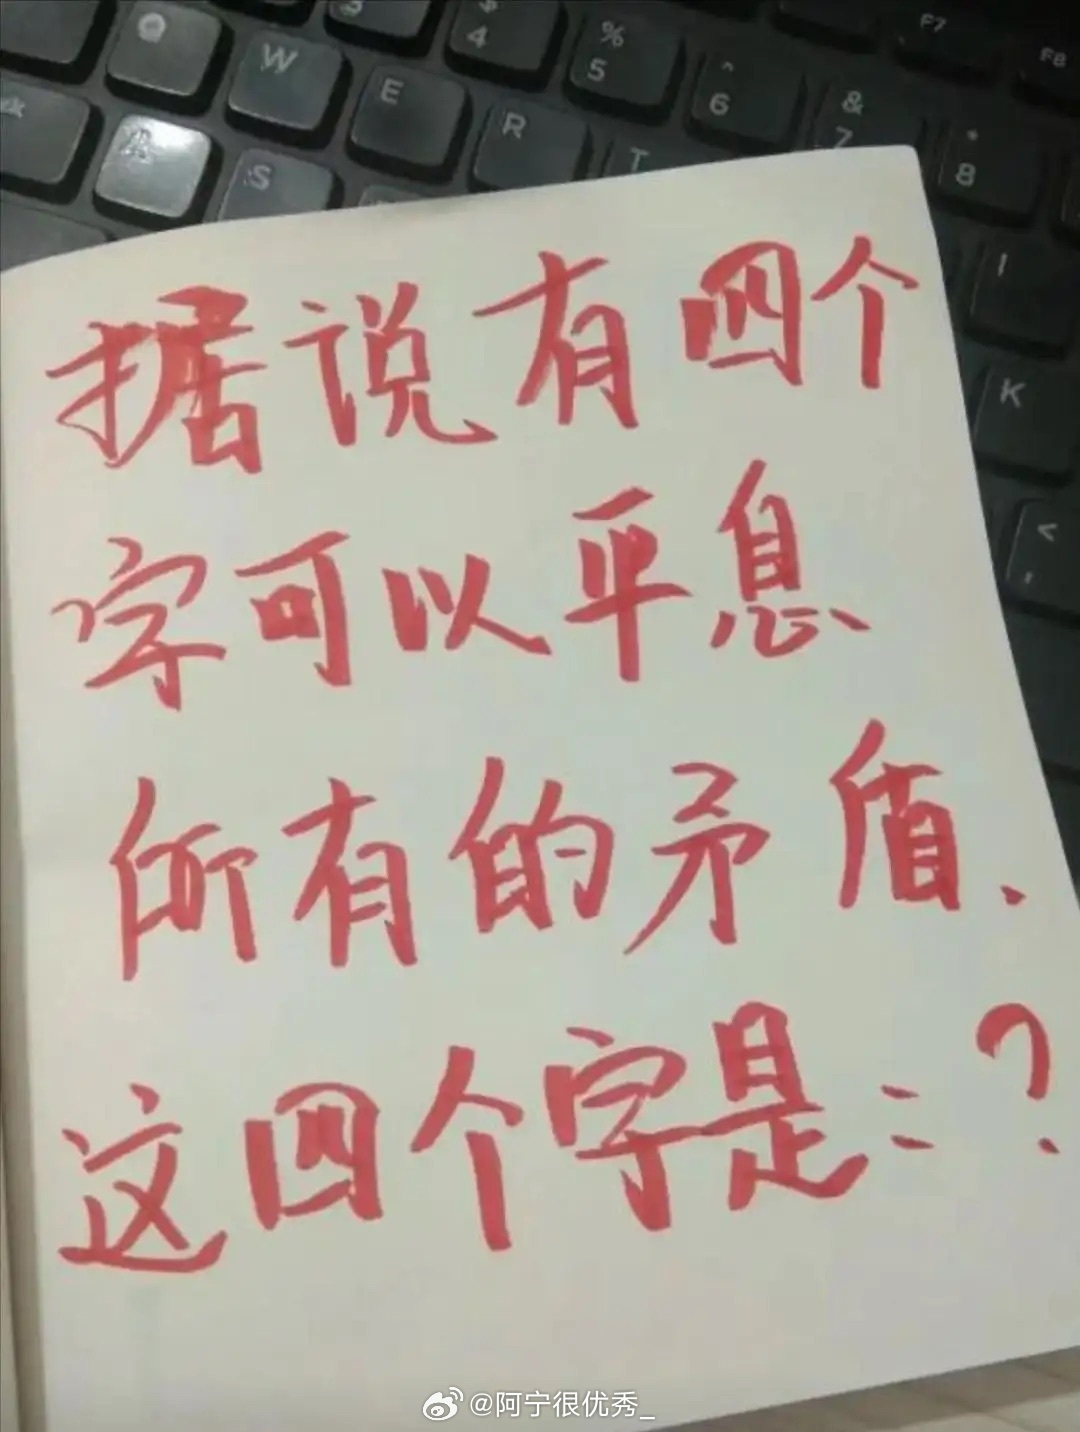 Q W E R T
A S
$ 4 % 5 ^ 6 & 7 * 8
F7 F8
I
K
< ,
据说有四个
字可以平息
所有的矛盾.
这四个字是:?
@阿宁很优秀_